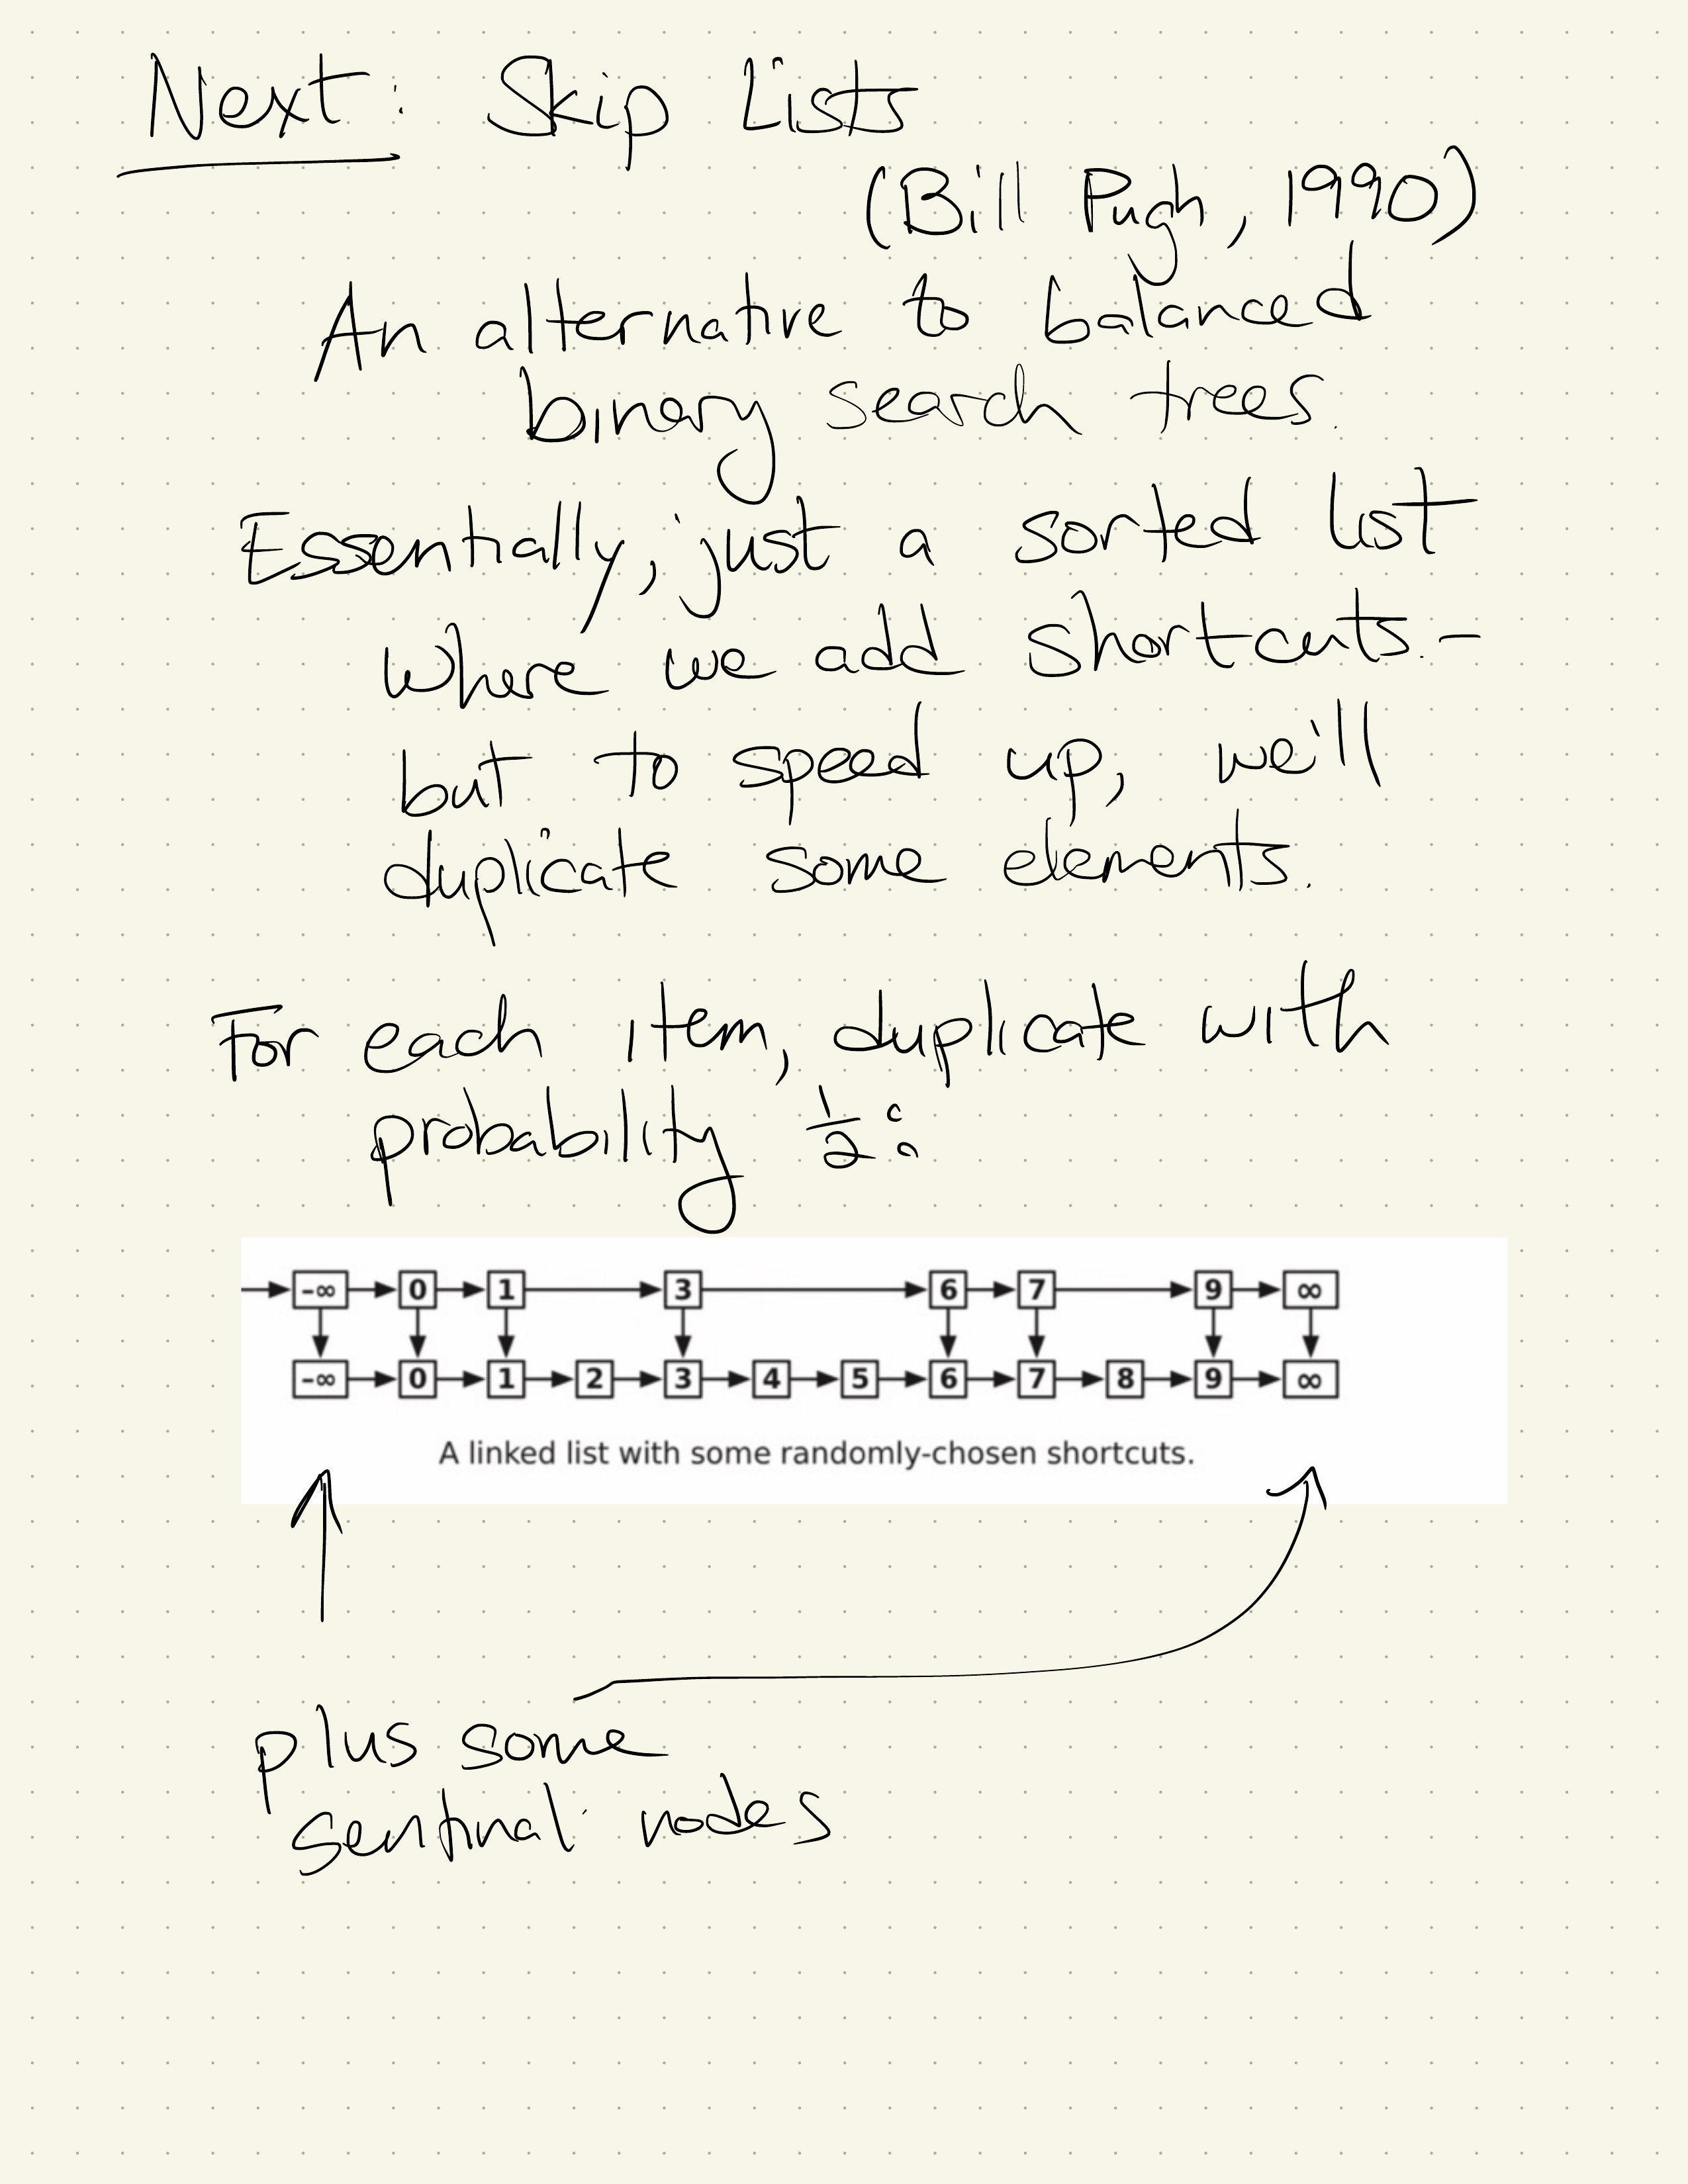 Next: Skip Lists
(Bill Pugh, 1990)
An alternative to balanced
binary search trees.
Essentially, just a sorted list
where we add shortcuts -
but to speed up, we'll
duplicate some elements.
For each item, duplicate with
probability 1/2:
-∞ 0 1 3 6 7 9 ∞
-∞ 0 1 2 3 4 5 6 7 8 9 ∞
A linked list with some randomly-chosen shortcuts.
plus some
sentinal nodes